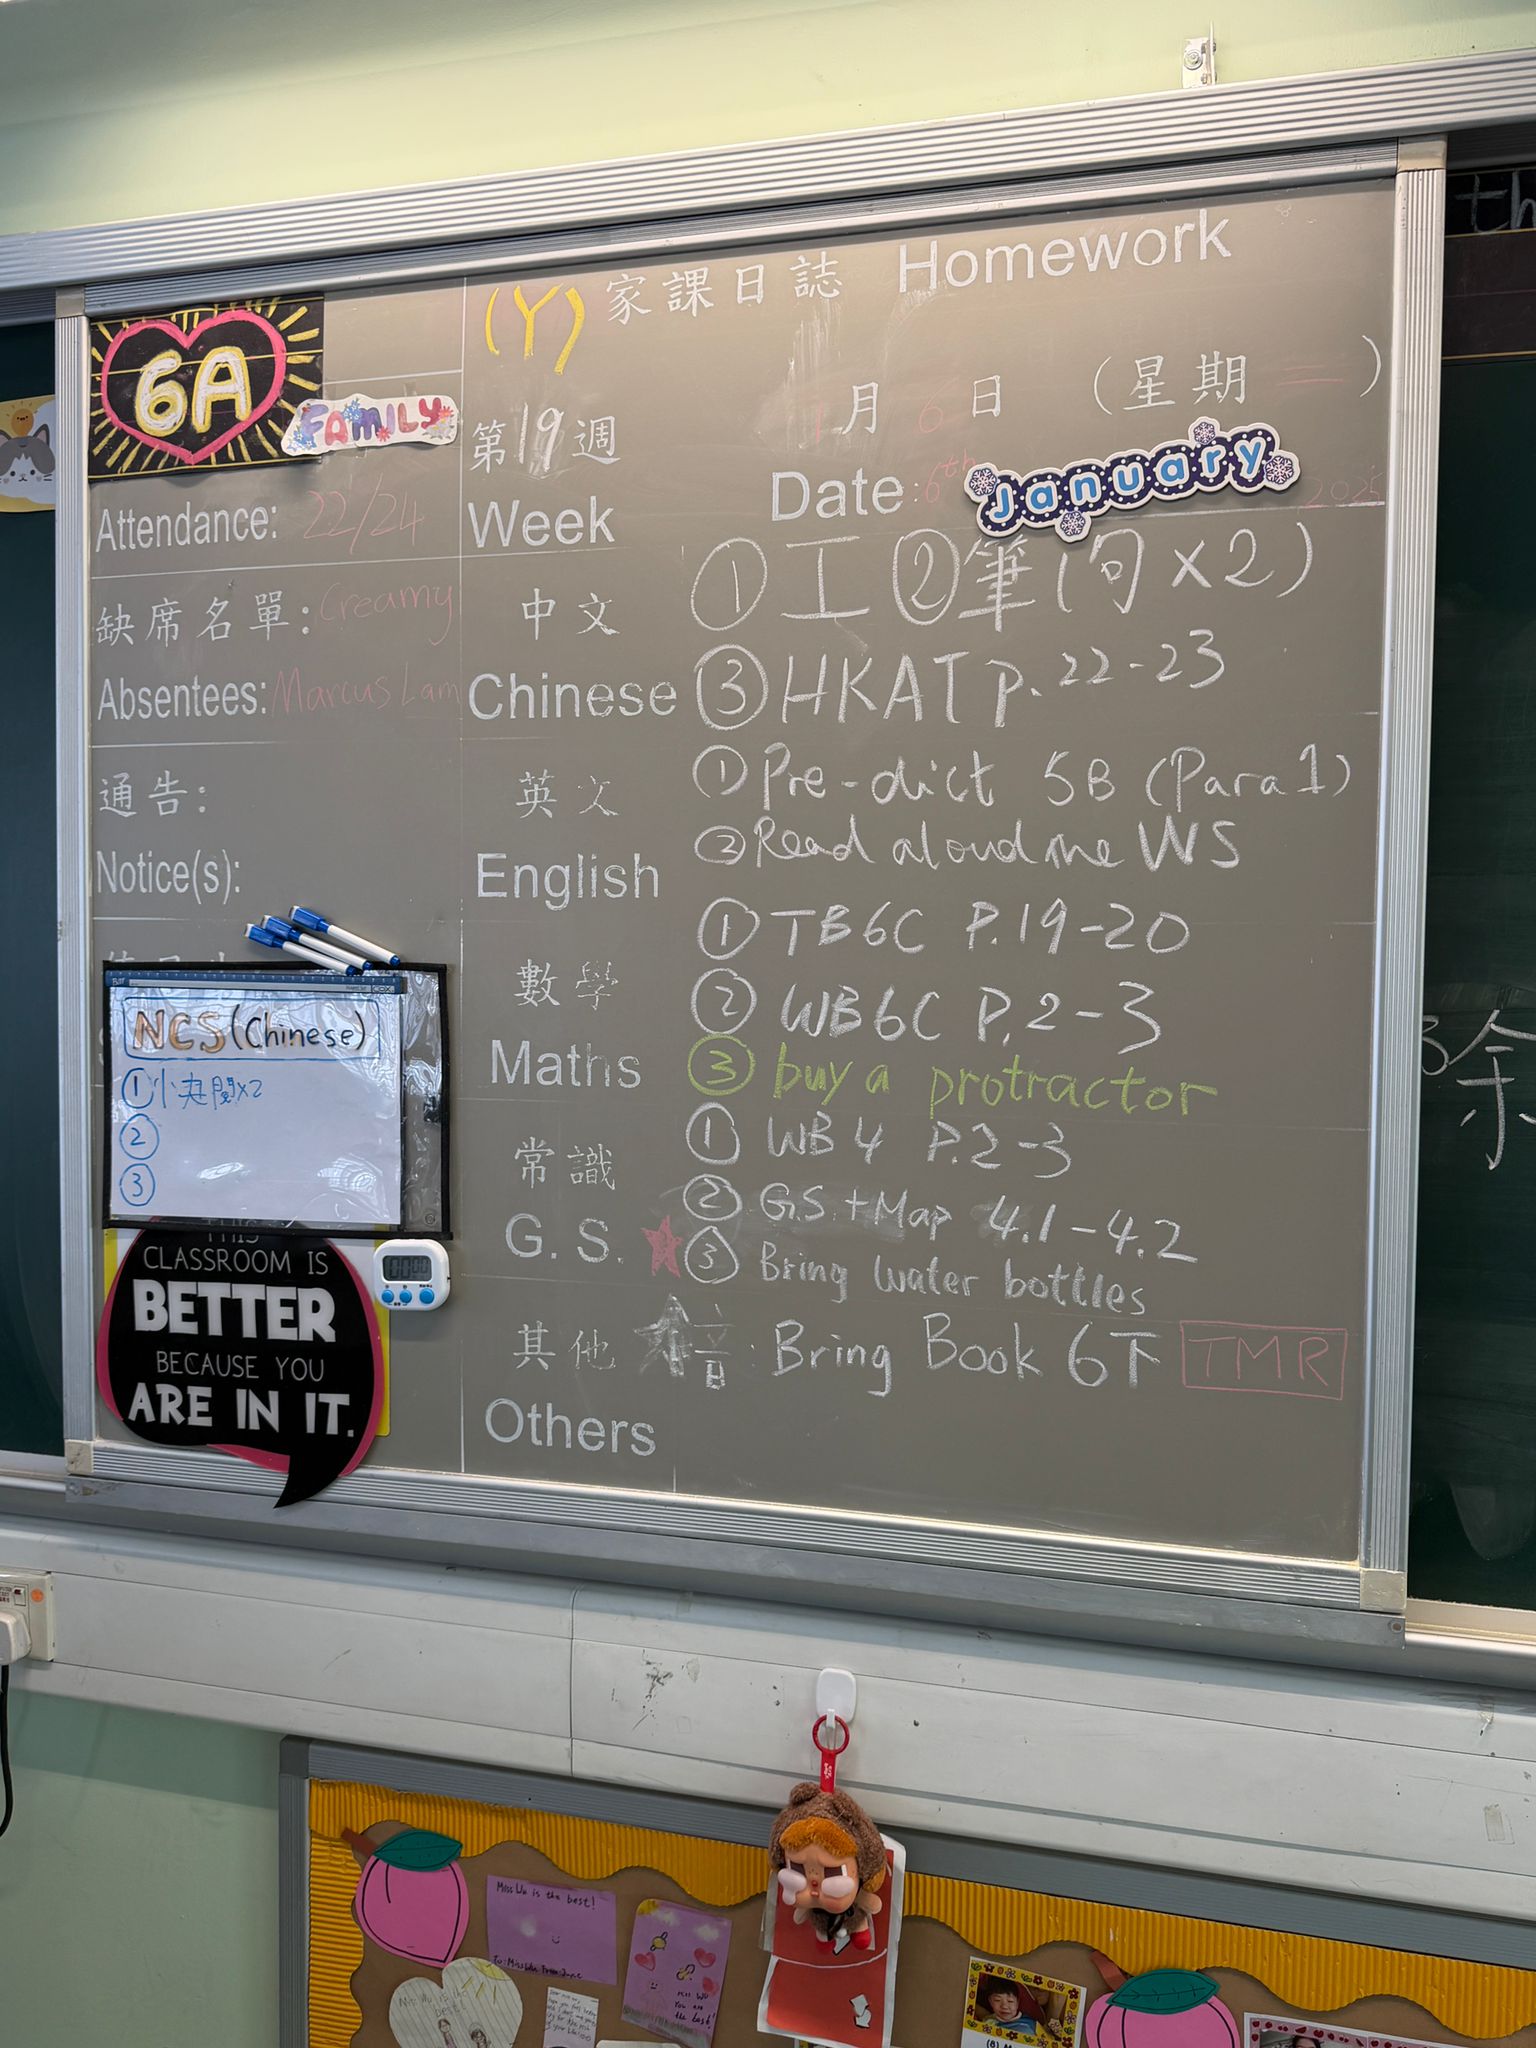 家課日誌 Homework
(Y)
6A
FAMILY
1月6日 (星期二)
第19週
Week
Date: 6th January 2025
Attendance: 22/24
缺席名單: Creamy
Absentees: Marcus Lam
通告:
Notice(s):
中文
Chinese
① 工 ② 筆(句×2)
③ HKAT P.22-23
英文
English
① Pre-dict 5B (Para 1)
② Read aloud the WS
數學
Maths
① TB6C P.19-20
② WB6C P.2-3
③ buy a protractor
常識
G.S.
① WB4 P.2-3
② G.S. + Map 4.1-4.2
③ Bring water bottles
其他
Others
音: Bring Book 6下 TMR
NCS (Chinese)
①
②
③
THIS
CLASSROOM IS
BETTER
BECAUSE YOU
ARE IN IT.
00:00
Miss Wu is the best!
Miss Wu
You are
the best!